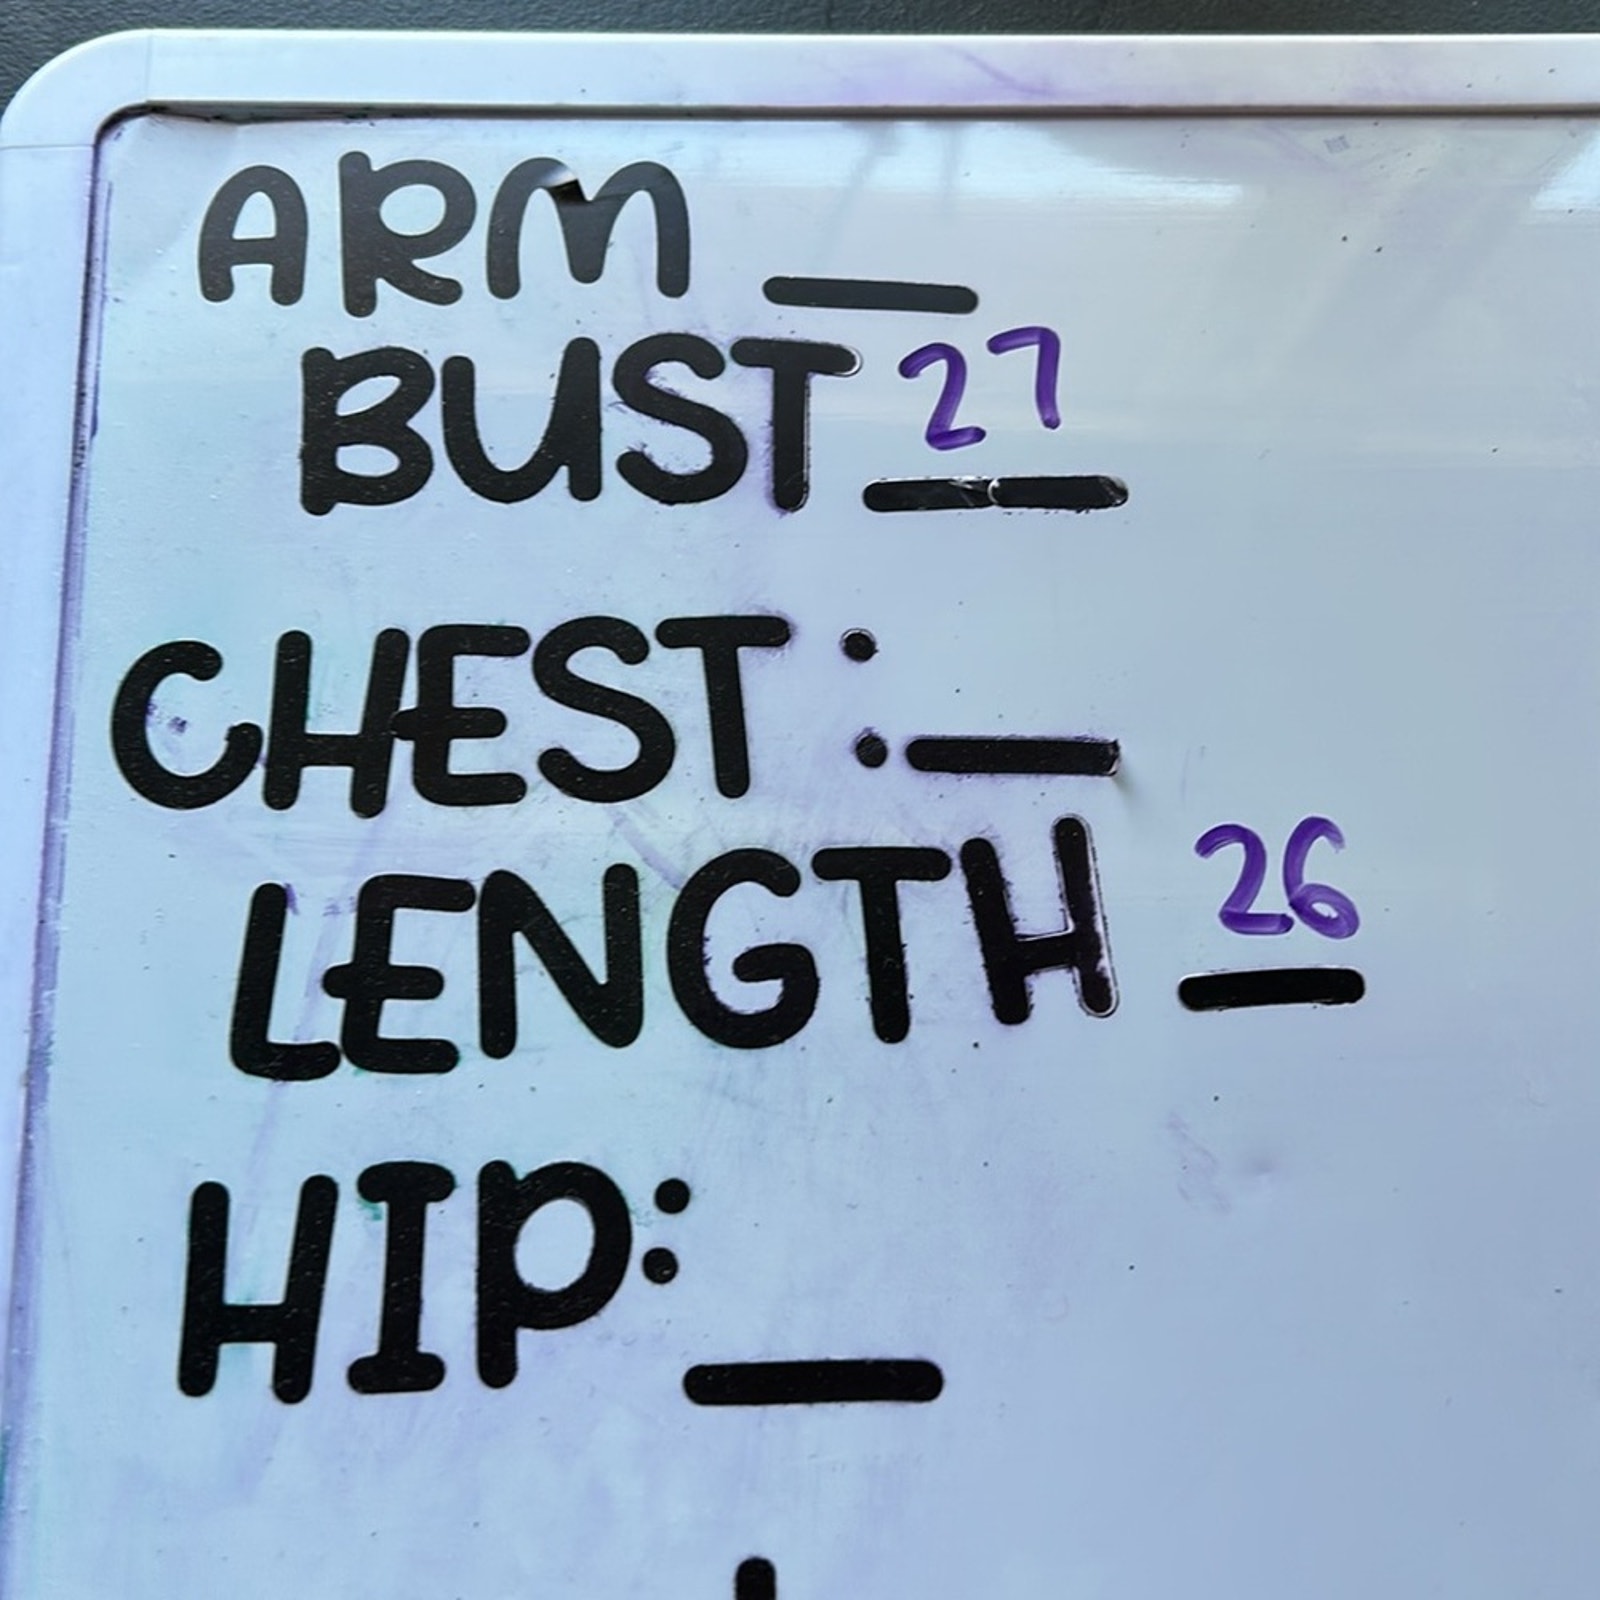 ARM __
BUST 27
CHEST: __
LENGTH 26
HIP: __